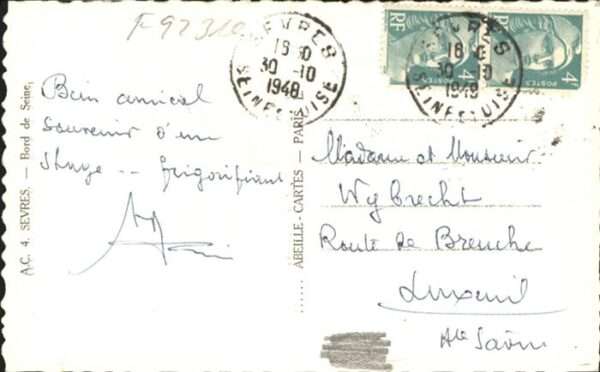 F 92310
SEVRES
18 30
30-10
1948
SEINE-OISE
SEVRES
18 30
30-10
1948
SEINE-OISE
RF
4F
POSTES
RF
4F
POSTES
A.C. 4. SEVRES. — Bord de Seine.
Bien amical
souvenir d'un
stage -- frigorifiant
ABEILLE-CARTES — PARIS
Madame et Monsieur
Wybrecht
Route de Breuche
Luxeuil
Hte Saône